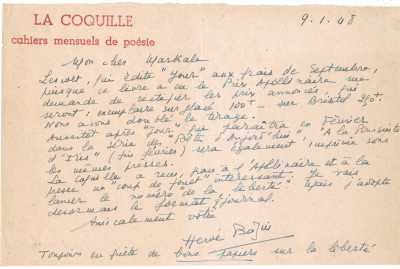 LA COQUILLE
9.1.48
cahiers mensuels de poésie
Mon cher Markale
puisque ce livre a eu le Prix Apollinaire me
demande de les prix annoncés qui
seront : exemplaire sur 100F sur Bristol 250F.
Nous avons doublé le tirage.
Aussitôt après "Jour" qui paraîtra en Février
dans la série des "A la Poursuite
d'Iris" (fin février) sera également imprimé sous
les mêmes presses.
La Coquille a reçu, grâce à l'Apollinaire et à la
presse, un "coup de fouet" intéressant. Je vais
lancer le numéro de la liberté j'adopte
désormais le format journal.
Amicalement vôtre
Hervé Bazin
Toujours en quête de bons papiers sur la liberté